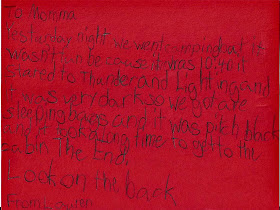 To Momma
Yesterday night we went
wasn't fun because it was
scared to thunder and Lightning and
it was very dark so we got are
sleeping bags and it was pitch black
and it took a long time to get to the
cabin. The End
Look on the back
From